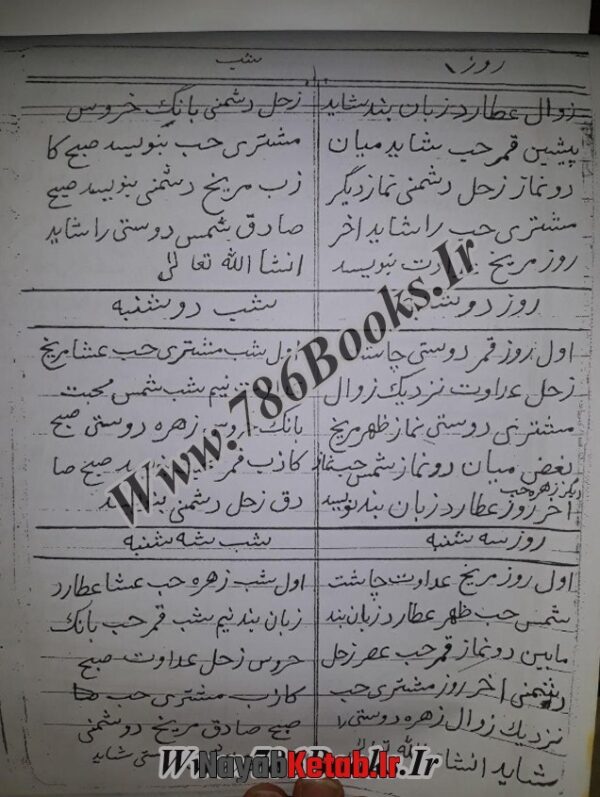 روز
شب
زوال عطارد زبان بند شاید
پیشین قمر حب شاید میان
دو نماز زحل دشمنی نماز دیگر
مشتری حب را شاید اخر
روز مریخ بنویسد
زحل دشمنی بانک خروس
مشتری حب بنویسد صبح کا
ذب مریخ دشمنی بنویسد صبح
صادق شمس دوستی را شاید
انشا الله تعالی
روز دوشنبه
شب دوشنبه
اول روز قمر دوستی چاشت
زحل عداوت نزدیک زوال
مشتری دوستی نماز ظهر مریخ
بغض میان دو نماز شمس حب نماز
دیگر زهره حب
اخر روز عطارد زبان بند نویسد
اول شب مشتری حب عشا مریخ
نیم شب شمس محبت
بانک خروس زهره دوستی صبح
کاذب صبح صا
دق زحل دشمنی
روز سه شنبه
شب سه شنبه
اول روز مریخ عداوت چاشت
شمس حب ظهر عطارد زبان بند
مابین دو نماز قمر حب عصر زحل
دشمنی اخر روز مشتری حب
نزدیک زوال زهره دوستی را
شاید انشا الله
اول شب زهره حب عشا عطارد
زبان بند نیم شب قمر حب بانک
خروس زحل عداوت صبح
کاذب مشتری حب
صبح صادق مریخ دوشمنی
شاید
Www.786Books.Ir
Www.786Books.Ir
NayabKetab.Ir